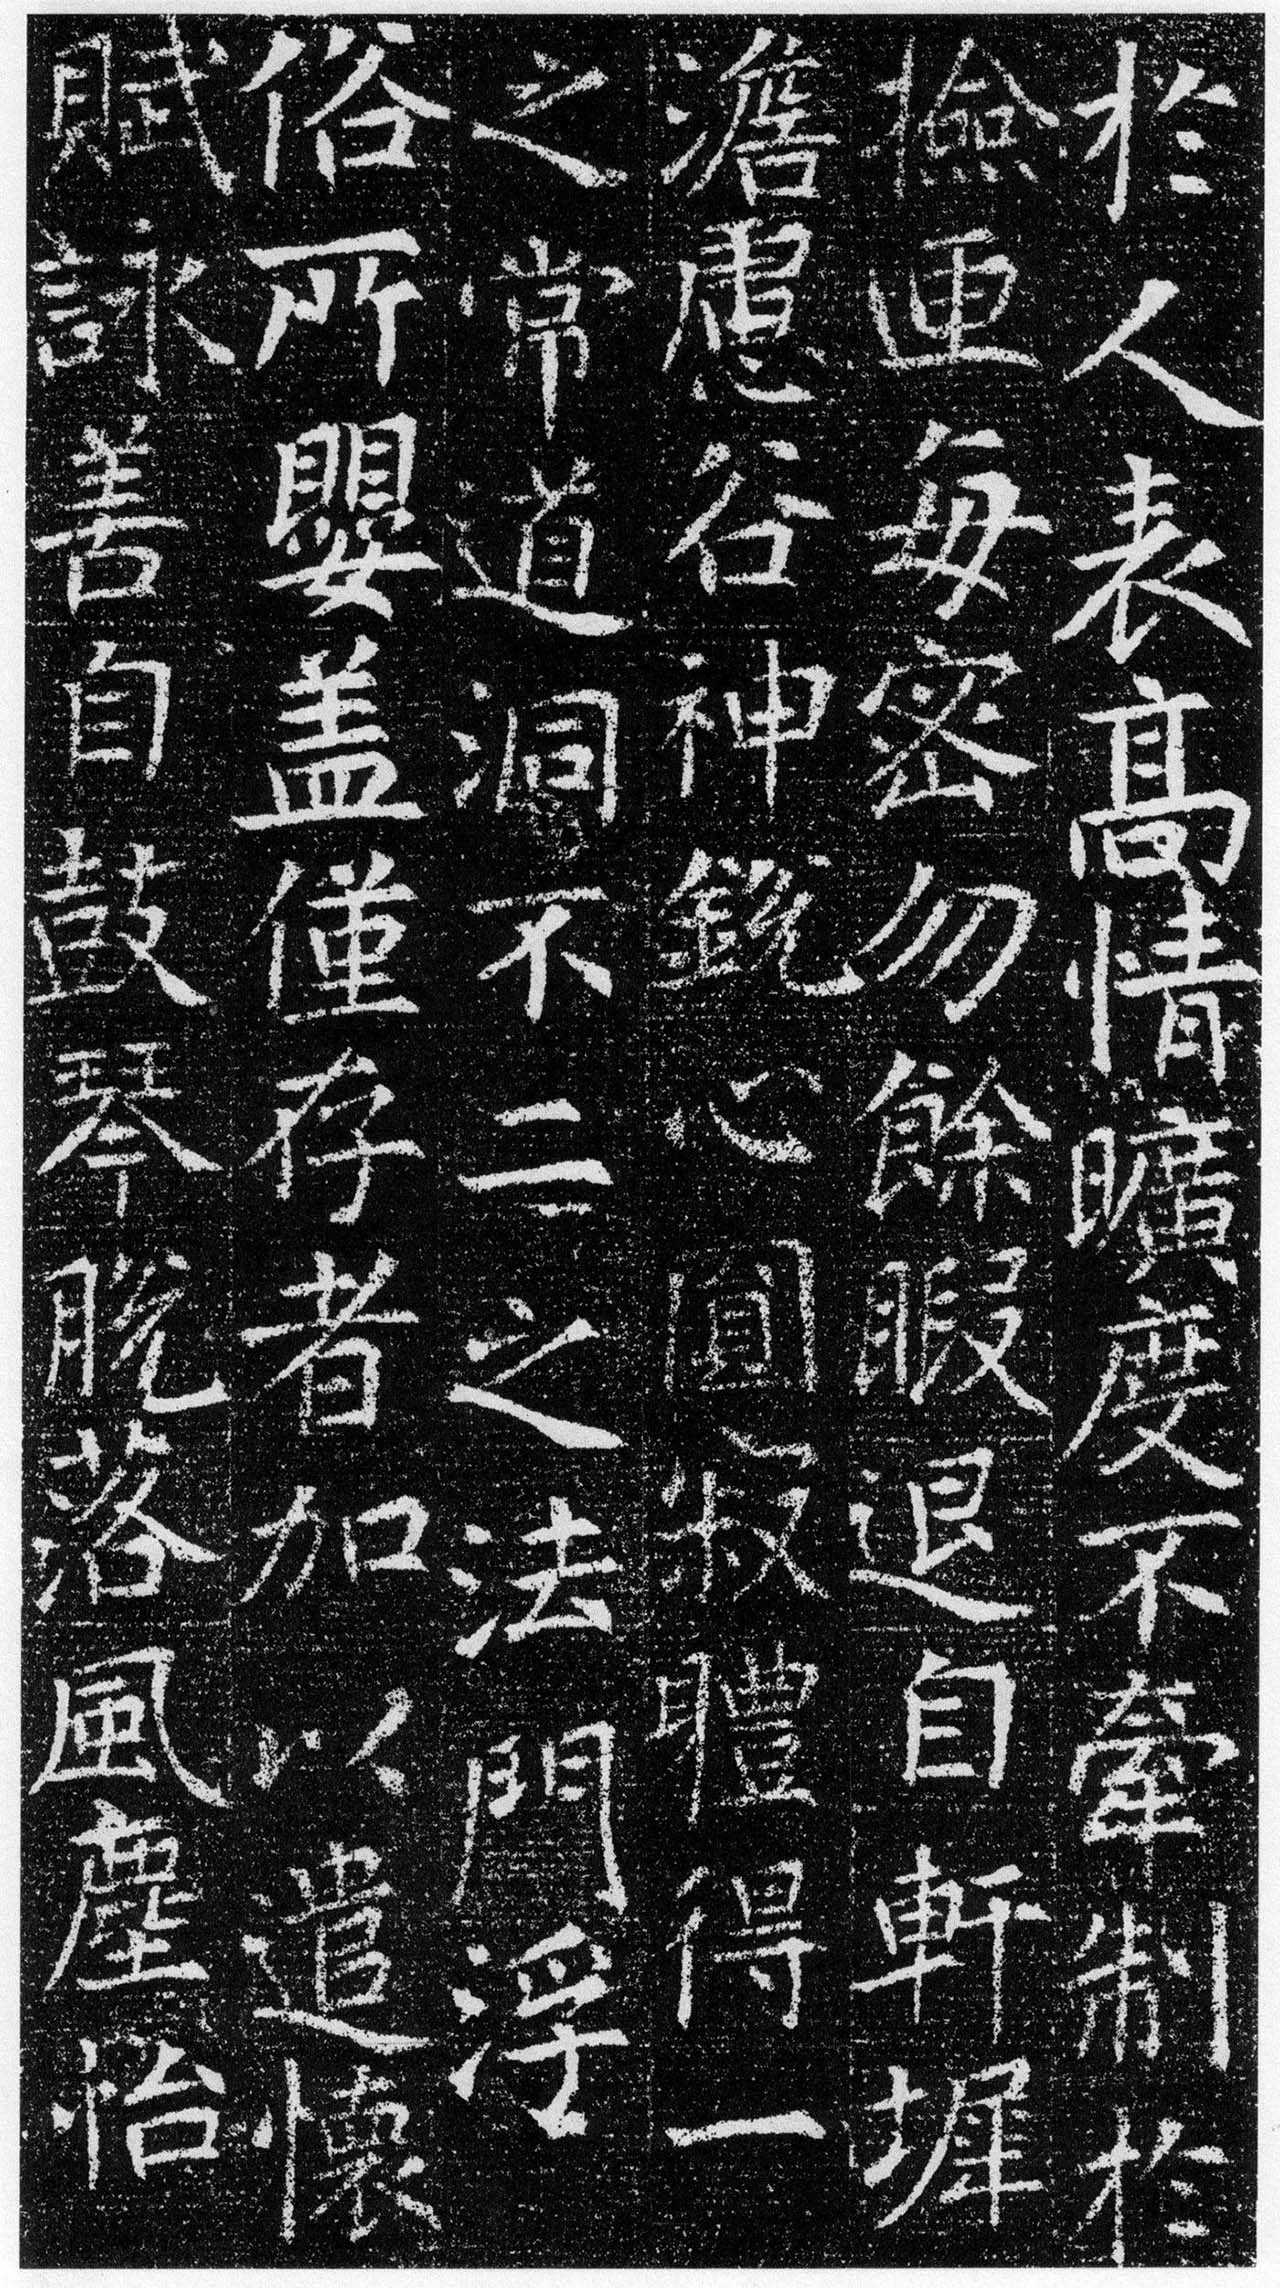 於人表高情曠度不牽制於
撿迊每密勿餘暇退自軒墀
澹慮谷神銳心圓寂體得一
之常道洞不二之法門浮
俗所嬰盖僅存者加以遣懷
賦詠善自鼓琴脫落風塵怡